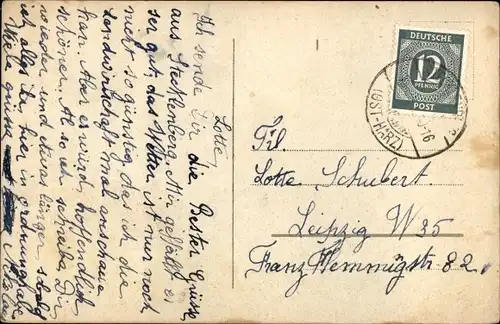 Lotte!
Ich sende Dir die Besten Grüsse
aus Stecklenberg. Mir gefällt es
sehr gut, das Wetter ist nur noch
nicht so günstig, das ich die
Landwirtschaft mal anschauen
kan. Aber es wird hoffendlich
schöner. Al so ich schreibe Dir
wieder und etwas länger, sobald
ich alles hier in ordnung habe
Viele grüsse
DEUTSCHE
12
PFENNIG
POST
(OST-HARZ)
Frl.
Lotte Schubert.
Leipzig W 35
Franz Flemmigstr 82.